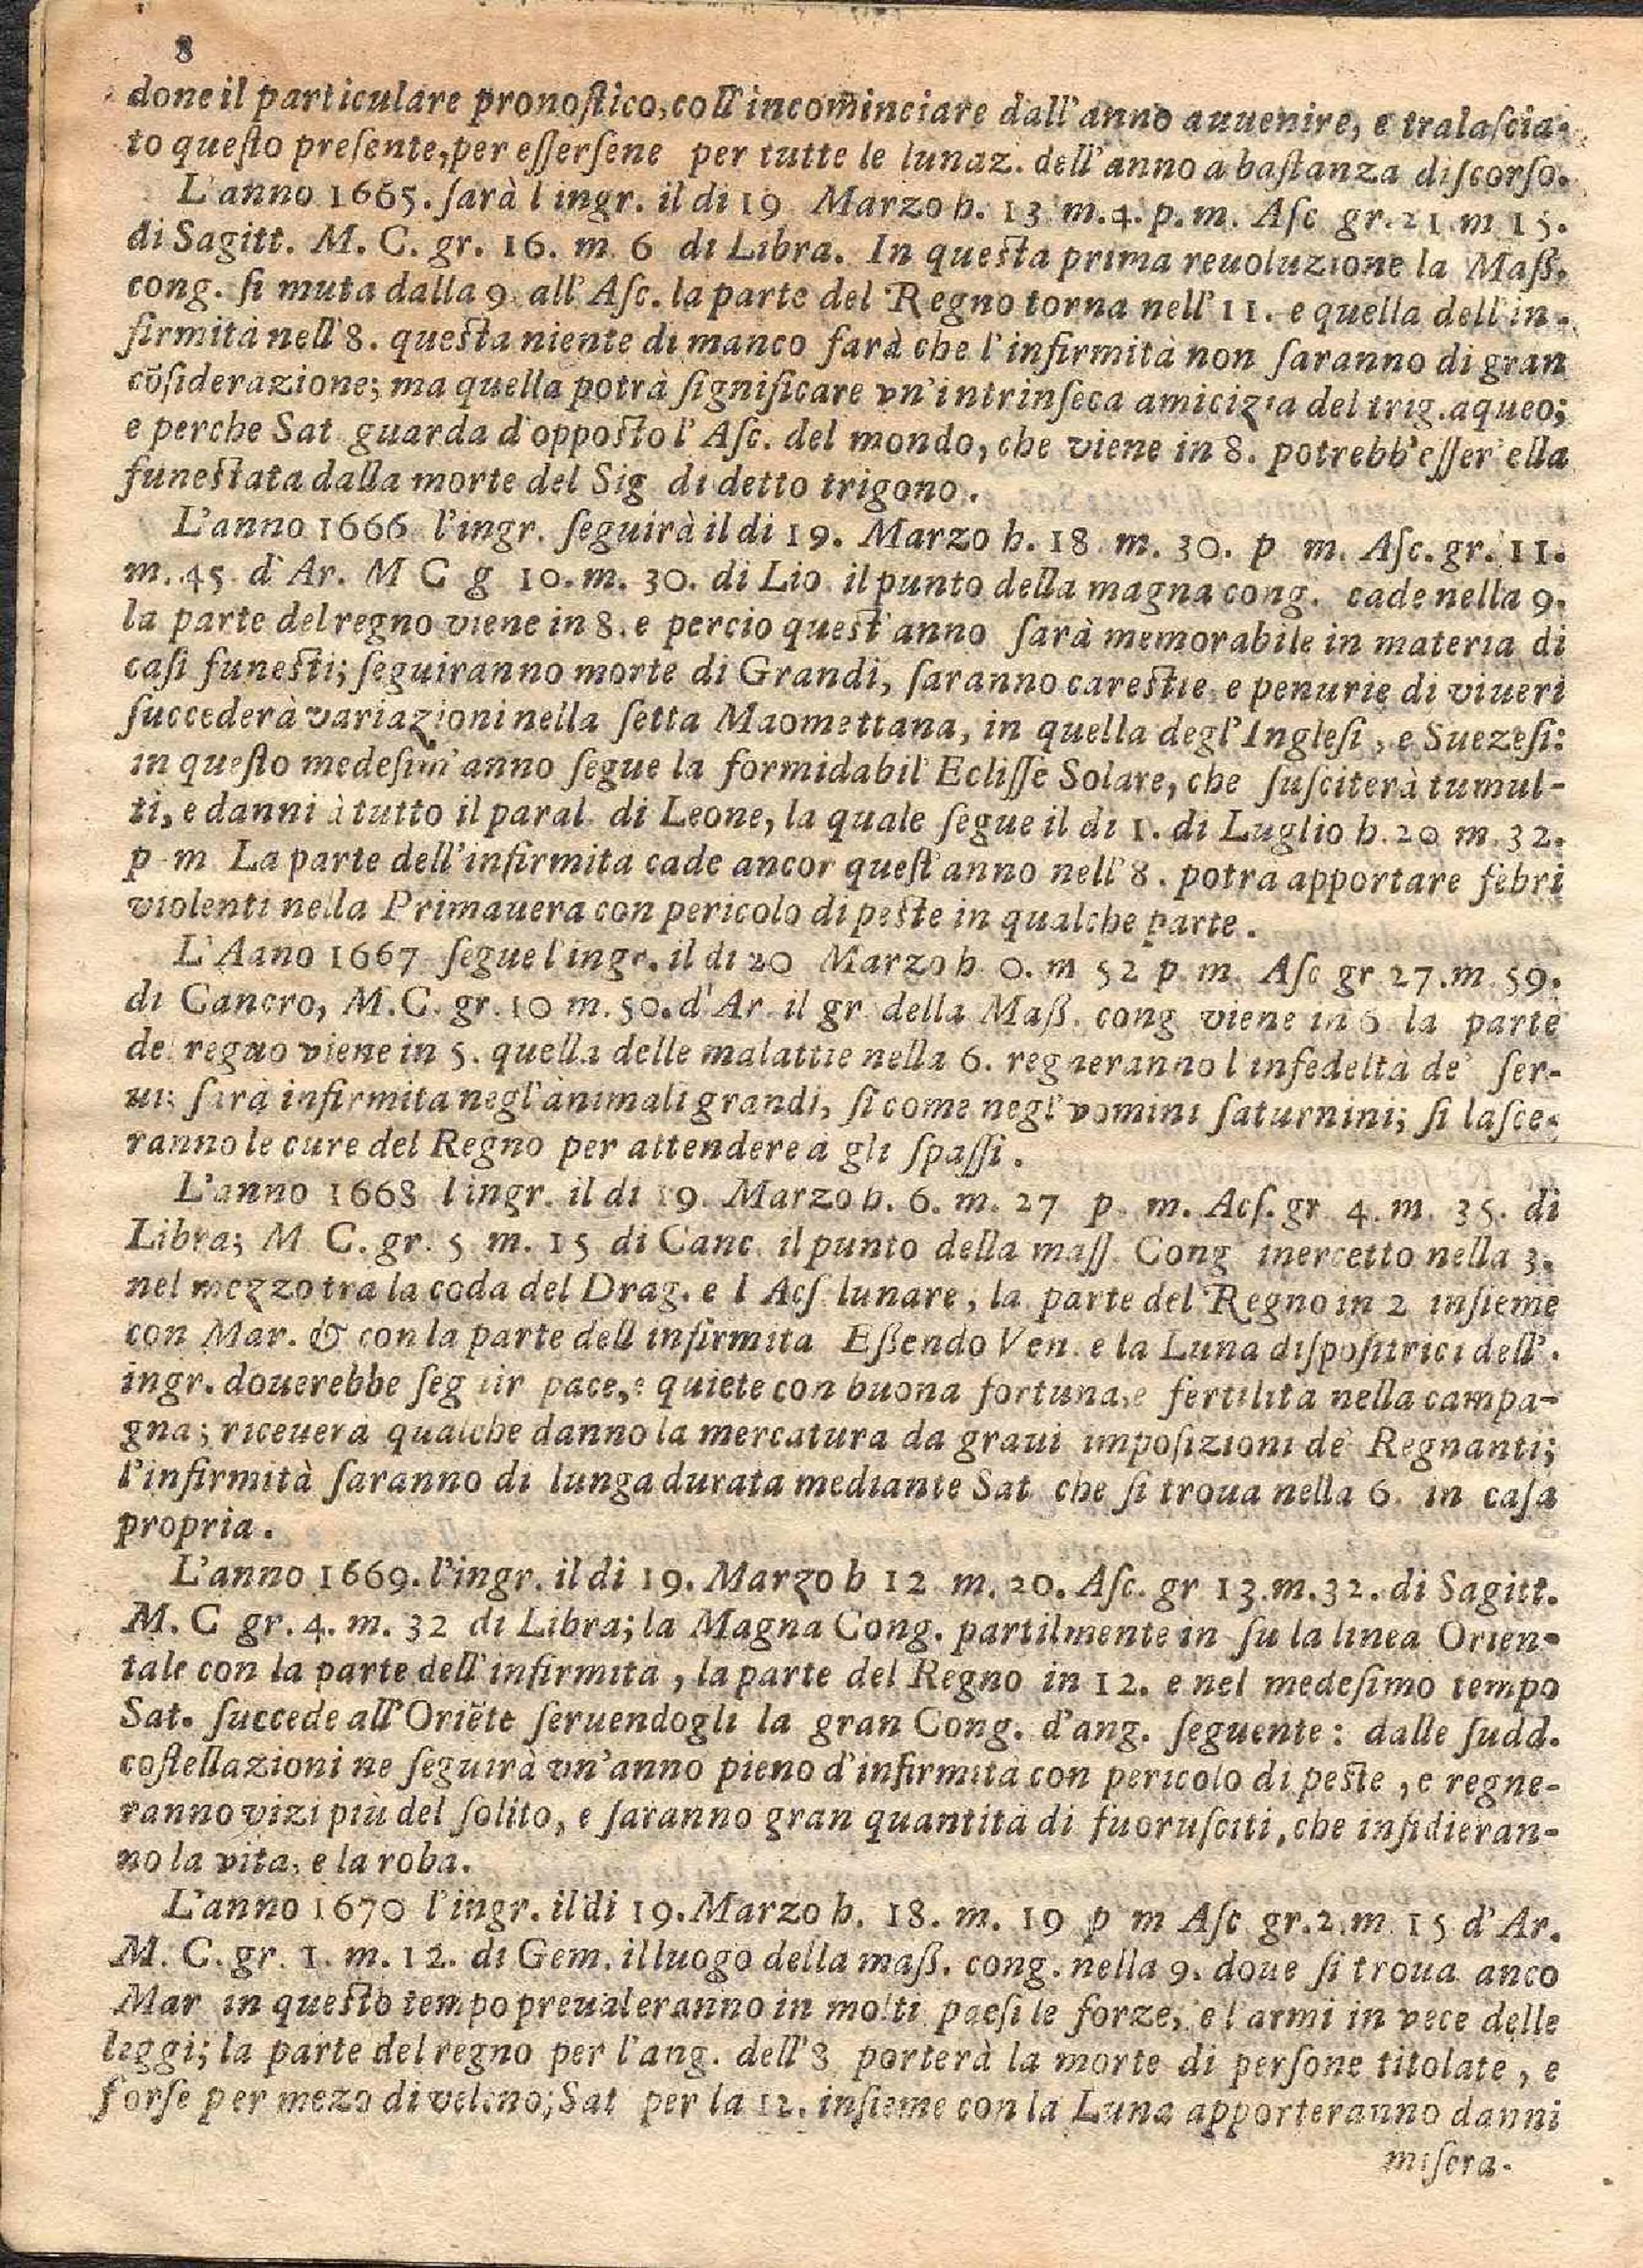 8
done il particulare pronoſtico, coll'incominciare dall'anno auuenire, e tralaſcia-
to queſto preſente, per eſſerſene per tutte le lunaz. dell'anno a baſtanza diſcorſo.
L'anno 1665. ſarà l ingr. il di 19 Marzo h. 13 m. 4. p. m. Aſc gr. 21 m 15.
di Sagitt. M. C. gr. 16. m. 6 di Libra. In queſta prima reuoluzione la Maß.
cong. ſi muta dalla 9. all'Aſc. la parte del Regno torna nell'11. e quella dell'in-
firmità nell'8. queſta niente di manco farà che l'infirmità non ſaranno di gran
cōſiderazione; ma quella potrà ſignificare vn'intrinſeca amicizia del trig. aqueo;
e perche Sat guarda d'oppoſto l'Aſc. del mondo, che viene in 8. potrebb'eſſer ella
funeſtata dalla morte del Sig di detto trigono.
L'anno 1666 l'ingr. ſeguirà il di 19. Marzo h. 18 m. 30. p m. Aſc. gr. 11.
m. 45. d'Ar. M C g 10. m. 30. di Lio il punto della magna cong. cade nella 9.
la parte del regno viene in 8. e percio queſt'anno ſarà memorabile in materia di
caſi funeſti; ſeguiranno morte di Grandi, ſaranno careſtie, e penurie di viueri
ſuccederà variazioni nella ſetta Maomettana, in quella degl'Ingleſi, e Suezeſi:
in queſto medeſim'anno ſegue la formidabil Ecliſſe Solare, che ſuſciterà tumul-
ti, e danni à tutto il paral. di Leone, la quale ſegue il di 1. di Luglio h. 20 m. 32.
p m La parte dell'infirmità cade ancor queſt'anno nell'8. potra apportare febri
violenti nella Primauera con pericolo di peſte in qualche parte.
L'Aano 1667 ſegue l'ingr. il di 20 Marzo h. 0. m 52 p. m. Aſc gr 27. m. 59.
di Cancro, M. C. gr. 10 m. 50. d'Ar. il gr. della Maß. cong viene in 6 la parte
del regno viene in 5. quella delle malattie nella 6. regneranno l'infedeltà de' ſer-
ui; ſarà infirmita negl'animali grandi, ſi come negl'vomini ſaturnini; ſi laſce-
ranno le cure del Regno per attendere à gli ſpaſſi.
L'anno 1668 l'ingr. il di 19. Marzo h. 6. m. 27 p. m. Acſ. gr 4. m. 35. di
Libra; M C. gr. 5 m. 15 di Canc. il punto della maſſ. Cong inercetto nella 3.
nel mezzo tra la coda del Drag. e l Acſ lunare, la parte del Regno in 2 inſieme
con Mar. & con la parte dell infirmita Eßendo Ven. e la Luna diſpoſitrici dell'.
ingr. douerebbe ſeguir pace, e quiete con buona fortuna, e fertilità nella campa-
gna; riceuerà qualche danno la mercatura da graui impoſizioni de' Regnanti;
l'infirmità ſaranno di lunga durata mediante Sat che ſi troua nella 6. in caſa
propria.
L'anno 1669. l'ingr. il di 19. Marzo h 12 m. 20. Aſc. gr 13. m. 32. di Sagitt.
M. C gr. 4. m. 32 di Libra; la Magna Cong. partilmente in ſu la linea Orien-
tale con la parte dell'infirmità, la parte del Regno in 12. e nel medeſimo tempo
Sat. ſuccede all'Oriēte ſeruendogli la gran Cong. d'ang. ſeguente: dalle ſudd.
coſtellazioni ne ſeguirà vn'anno pieno d'infirmità con pericolo di peſte, e regne-
ranno vizi più del ſolito, e ſaranno gran quantità di fuoruſciti, che inſidieran-
no la vita, e la roba.
L'anno 1670 l'ingr. il di 19. Marzo h. 18. m. 19 p m Aſc gr. 2. m 15 d'Ar.
M. C. gr. 1. m. 12. di Gem. il luogo della maß. cong. nella 9. doue ſi troua anco
Mar in queſto tempo preualeranno in molti paeſi le forze, e l'armi in vece delle
leggi; la parte del regno per l'ang. dell'8 porterà la morte di perſone titolate, e
forſe per mezo di veleno; Sat per la 12. inſieme con la Luna apporteranno danni
miſera-